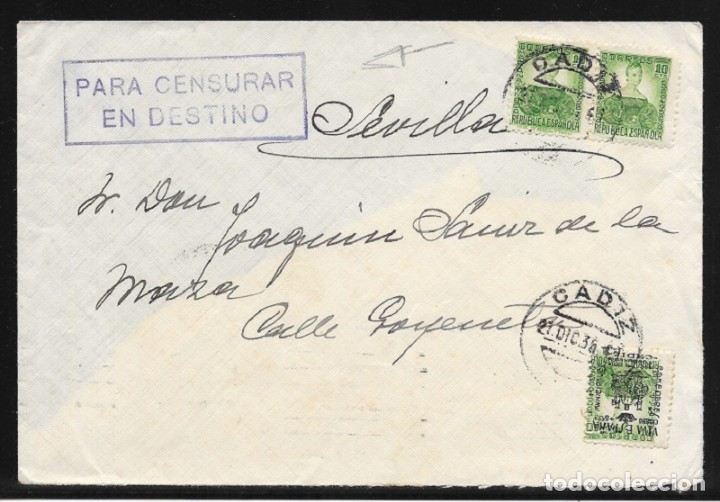 PARA CENSURAR
EN DESTINO
CADIZ
CORREOS
10
REPUBLICA ESPAÑOLA
REPUBLICA ESPAÑOLA
Sevilla
Sr. Don
Joaquin Sainz de la
Maza
Calle Goyeneta
CADIZ
21 DIC 36
VIVA ESPAÑA
todocoleccion.net